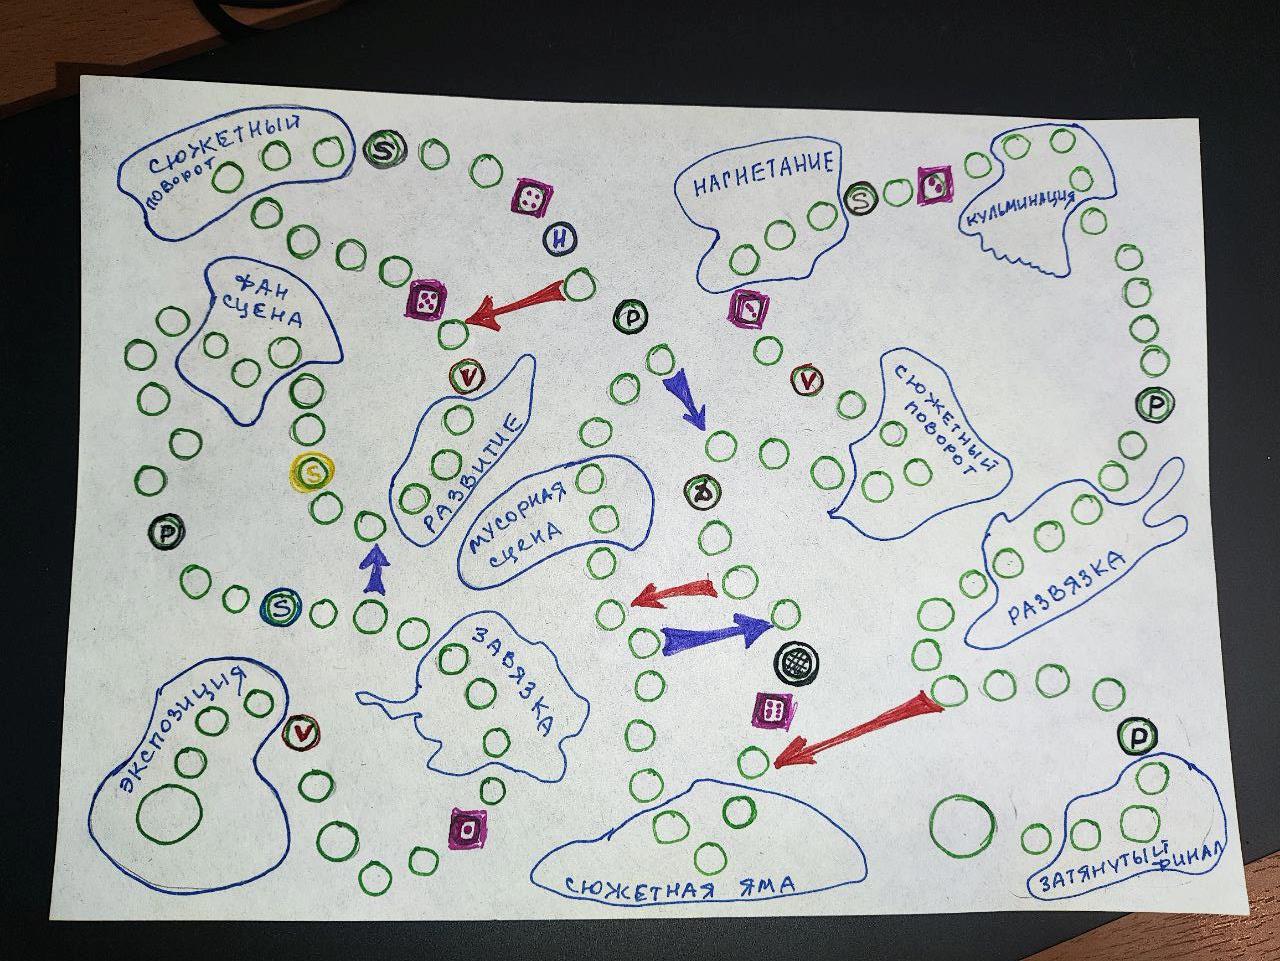 СЮЖЕТНЫЙ
ПОВОРОТ
S
H
НАГНЕТАНИЕ
S
КУЛЬМИНАЦИЯ
ФАН
СЦЕНА
P
V
V
СЮЖЕТНЫЙ
ПОВОРОТ
P
S
РАЗВИТИЕ
МУСОРНАЯ
СЦЕНА
P
S
ЗАВЯЗКА
РАЗВЯЗКА
ЭКСПОЗИЦИЯ
V
P
СЮЖЕТНАЯ ЯМА
ЗАТЯНУТЫЙ
ФИНАЛ